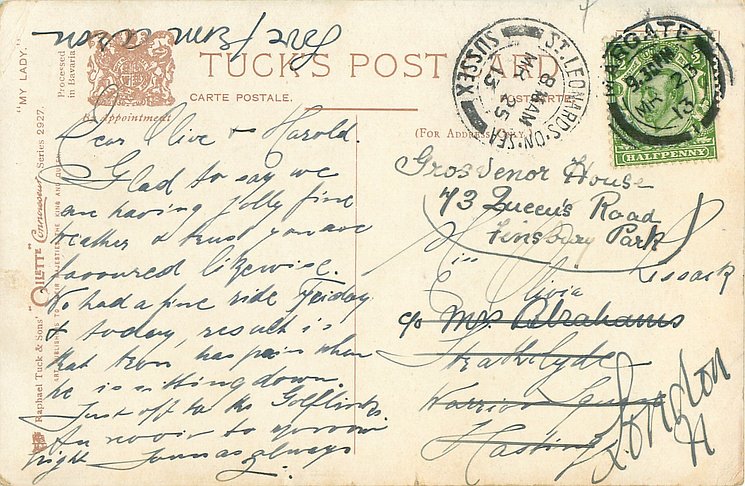 Love from
TUCK'S POST CARD
CARTE POSTALE.
POSTKARTE.
By Appointment
(FOR ADDRESS ONLY.)
"MY LADY."
Processed
in Bavaria
Raphael Tuck & Sons' "OILETTE" Connoisseur Series 2927.
ART PUBLISHERS TO THEIR MAJESTIES THE KING AND QUEEN.
ST. LEONARDS-ON-SEA
8 30 AM
MY 25
13
SUSSEX
MARGATE
HALFPENNY
Dear Olive & Harold.
Glad to say we
are having jolly fine
weather & trust you are
favoured likewise.
We had a fine ride Friday
& today, result is
that has pain when
he is sitting down.
Just off to the Golflinks.
Au revoir to morrow
night Yours as always
Grosvenor House
73 Queen's Road
Finsbury Park
Miss Olivia Issack
c/o Mrs Abrahams
Strathclyde
Warrior Square
Hastings
London
N